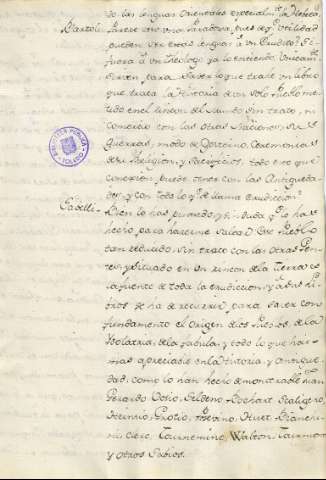 do las lenguas Orientales especialm.te la Hebrea.
Bartoli. Parece erto una Paradoxa, pues de q.e utilidad
pueden ser estas lenguas à un Erudito? Si
fuera à un Teologo ya lo entiendo. Unicam.te
sirven para saber lo que trahe un libro
que trata la Historia de un solo Pueblo me
tido en el rincon del Mundo sin trato, ni
Comercio con las otras Naciones: sus
Guerras, modo de govierno, Ceremonias
de su Religion, y Sacrificios. todo esto que
conexion puede tener con las Antigueda-
des, y con todo lo q.e se llama erudicion?
Padelli. Bien lo has pensado y sin duda q.e lo has
hecho para hacerme salar. Ese Pueblo
tan reducido, sin trato con las otras Gen-
tes, y situado en un rincon de la Tierra es
la fuente de toda la erudicion, y à sus Li-
bros se ha de recurrir para saver con
fundamento el origen de los Pueblos, de la
Idolatria, de la fabula, y todo lo que hai
mas apreciable en la Historia, y Antigue-
dad, como lo han hecho demonstrable Juan
Gerardo Vosio, Seldeno, Bochart, Scaligero,
Heinsio, Grocio, Huet, Bianchi-
ni, Clerc, Tournemine, Walton, Fourmon
y otros Sabios.
BIBLIOTECA PUBLICA
TOLEDO